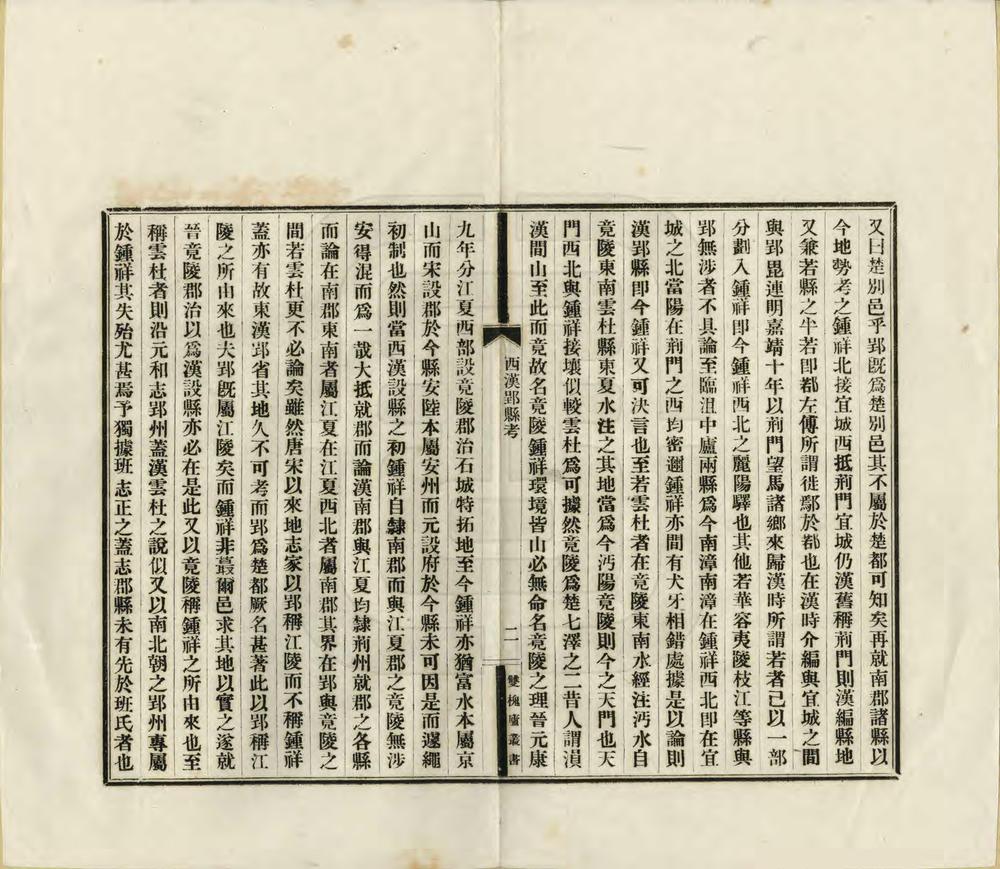 又曰楚別邑乎郢既爲楚別邑其不屬於楚都可知矣再就南郡諸縣以
今地勢考之鍾祥北接宜城西抵荊門宜城仍漢舊稱荊門則漢編縣地
又兼若縣之半若即都左傳所謂徙鄢於都也在漢時介編與宜城之間
與郢毘連明嘉靖十年以荊門望馬諸鄉來歸漢時所謂若者已以一部
分劃入鍾祥即今鍾祥西北之麗陽驛也其他若華容夷陵枝江等縣與
郢無涉者不具論至臨沮中廬兩縣爲今南漳南漳在鍾祥西北即在宜
城之北當陽在荊門之西均密邇鍾祥亦間有犬牙相錯處據是以論則
漢郢縣即今鍾祥又可決言也至若雲杜者在竟陵東南水經注沔水自
竟陵東南雲杜縣東夏水注之其地當爲今沔陽竟陵則今之天門也天
門西北與鍾祥接壤似較雲杜爲可據然竟陵爲楚七澤之一昔人謂溳
漢間山至此而竟故名竟陵鍾祥環境皆山必無命名竟陵之理晉元康
西漢郢縣考
二
雙槐廬叢書
九年分江夏西部設竟陵郡治石城特拓地至今鍾祥亦猶富水本屬京
山而宋設郡於今縣安陸本屬安州而元設府於今縣未可因是而遽繩
初制也然則當西漢設縣之初鍾祥自隸南郡而與江夏郡之竟陵無涉
安得混而爲一哉大抵就郡而論漢南郡與江夏均隸荊州就郡之各縣
而論在南郡東南者屬江夏在江夏西北者屬南郡其界在郢與竟陵之
間若雲杜更不必論矣雖然唐宋以來地志家以郢稱江陵而不稱鍾祥
蓋亦有故東漢郢省其地久不可考而郢爲楚都厥名甚著此以郢稱江
陵之所由來也夫郢既屬江陵矣而鍾祥非蕞爾邑求其地以實之遂就
晉竟陵郡治以爲漢設縣亦必在是此又以竟陵稱鍾祥之所由來也至
稱雲杜者則沿元和志郢州蓋漢雲杜之說似又以南北朝之郢州專屬
於鍾祥其失殆尤甚焉予獨據班志正之蓋志郡縣未有先於班氏者也